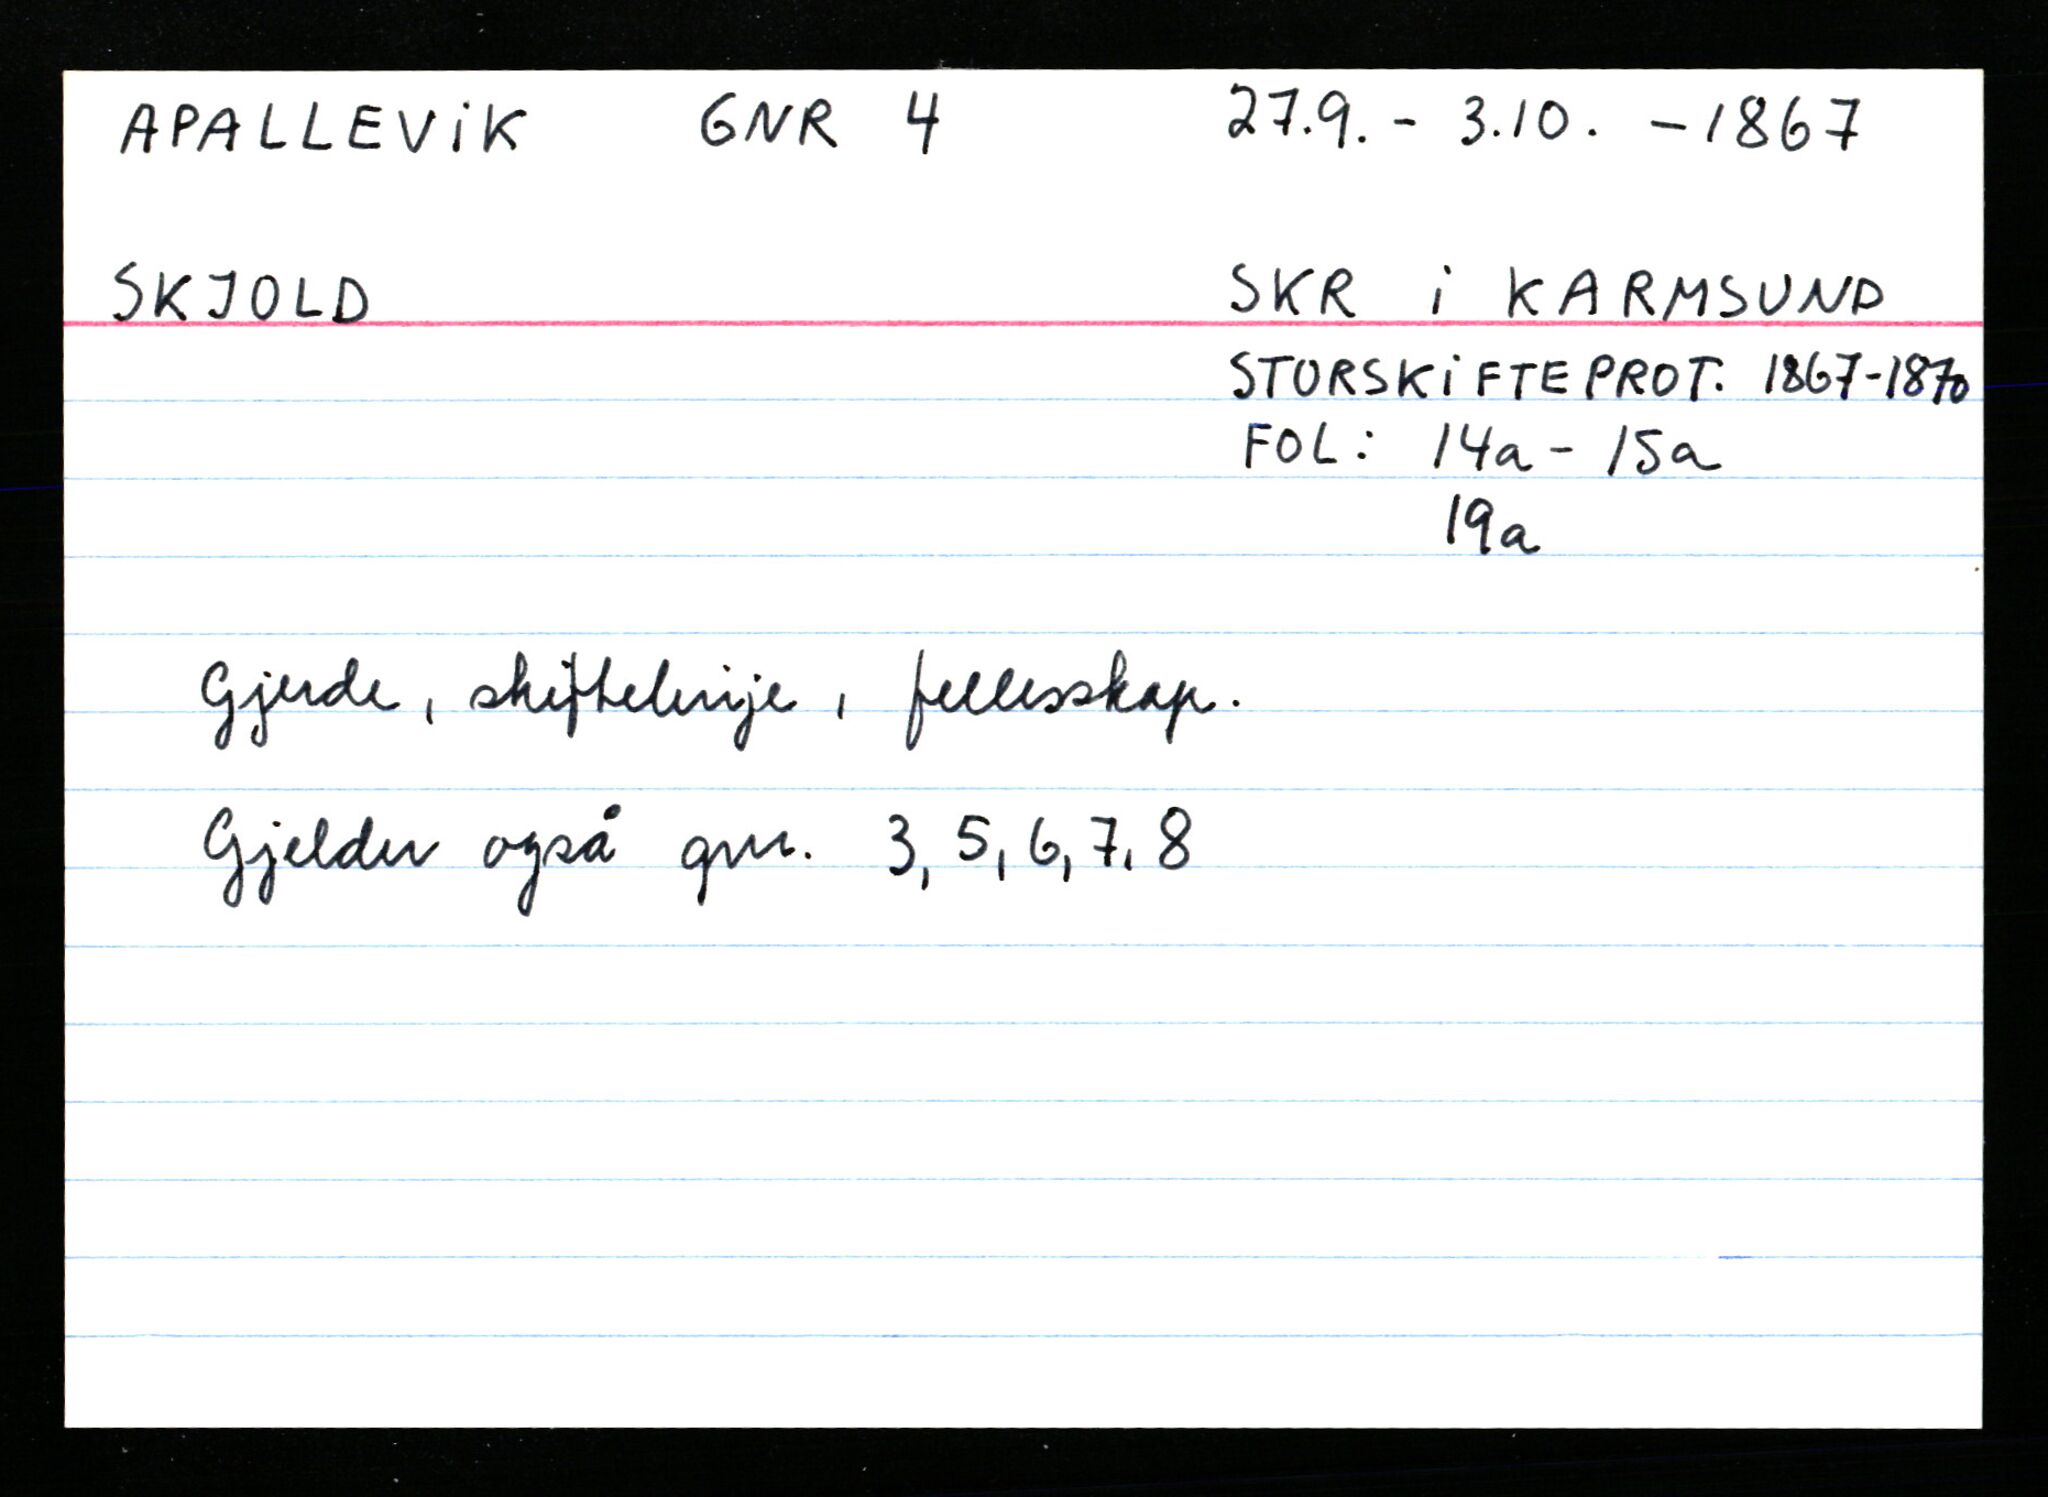 APALLEVIK GNR 4 27.9. - 3.10. - 1867
SKJOLD SKR i KARMSUND
STORSKIFTEPROT. 1867-1870
FOL: 14a - 15a
19a
Gjerde, skiftelinje, fellesskap.
Gjelder også gnr. 3, 5, 6, 7, 8